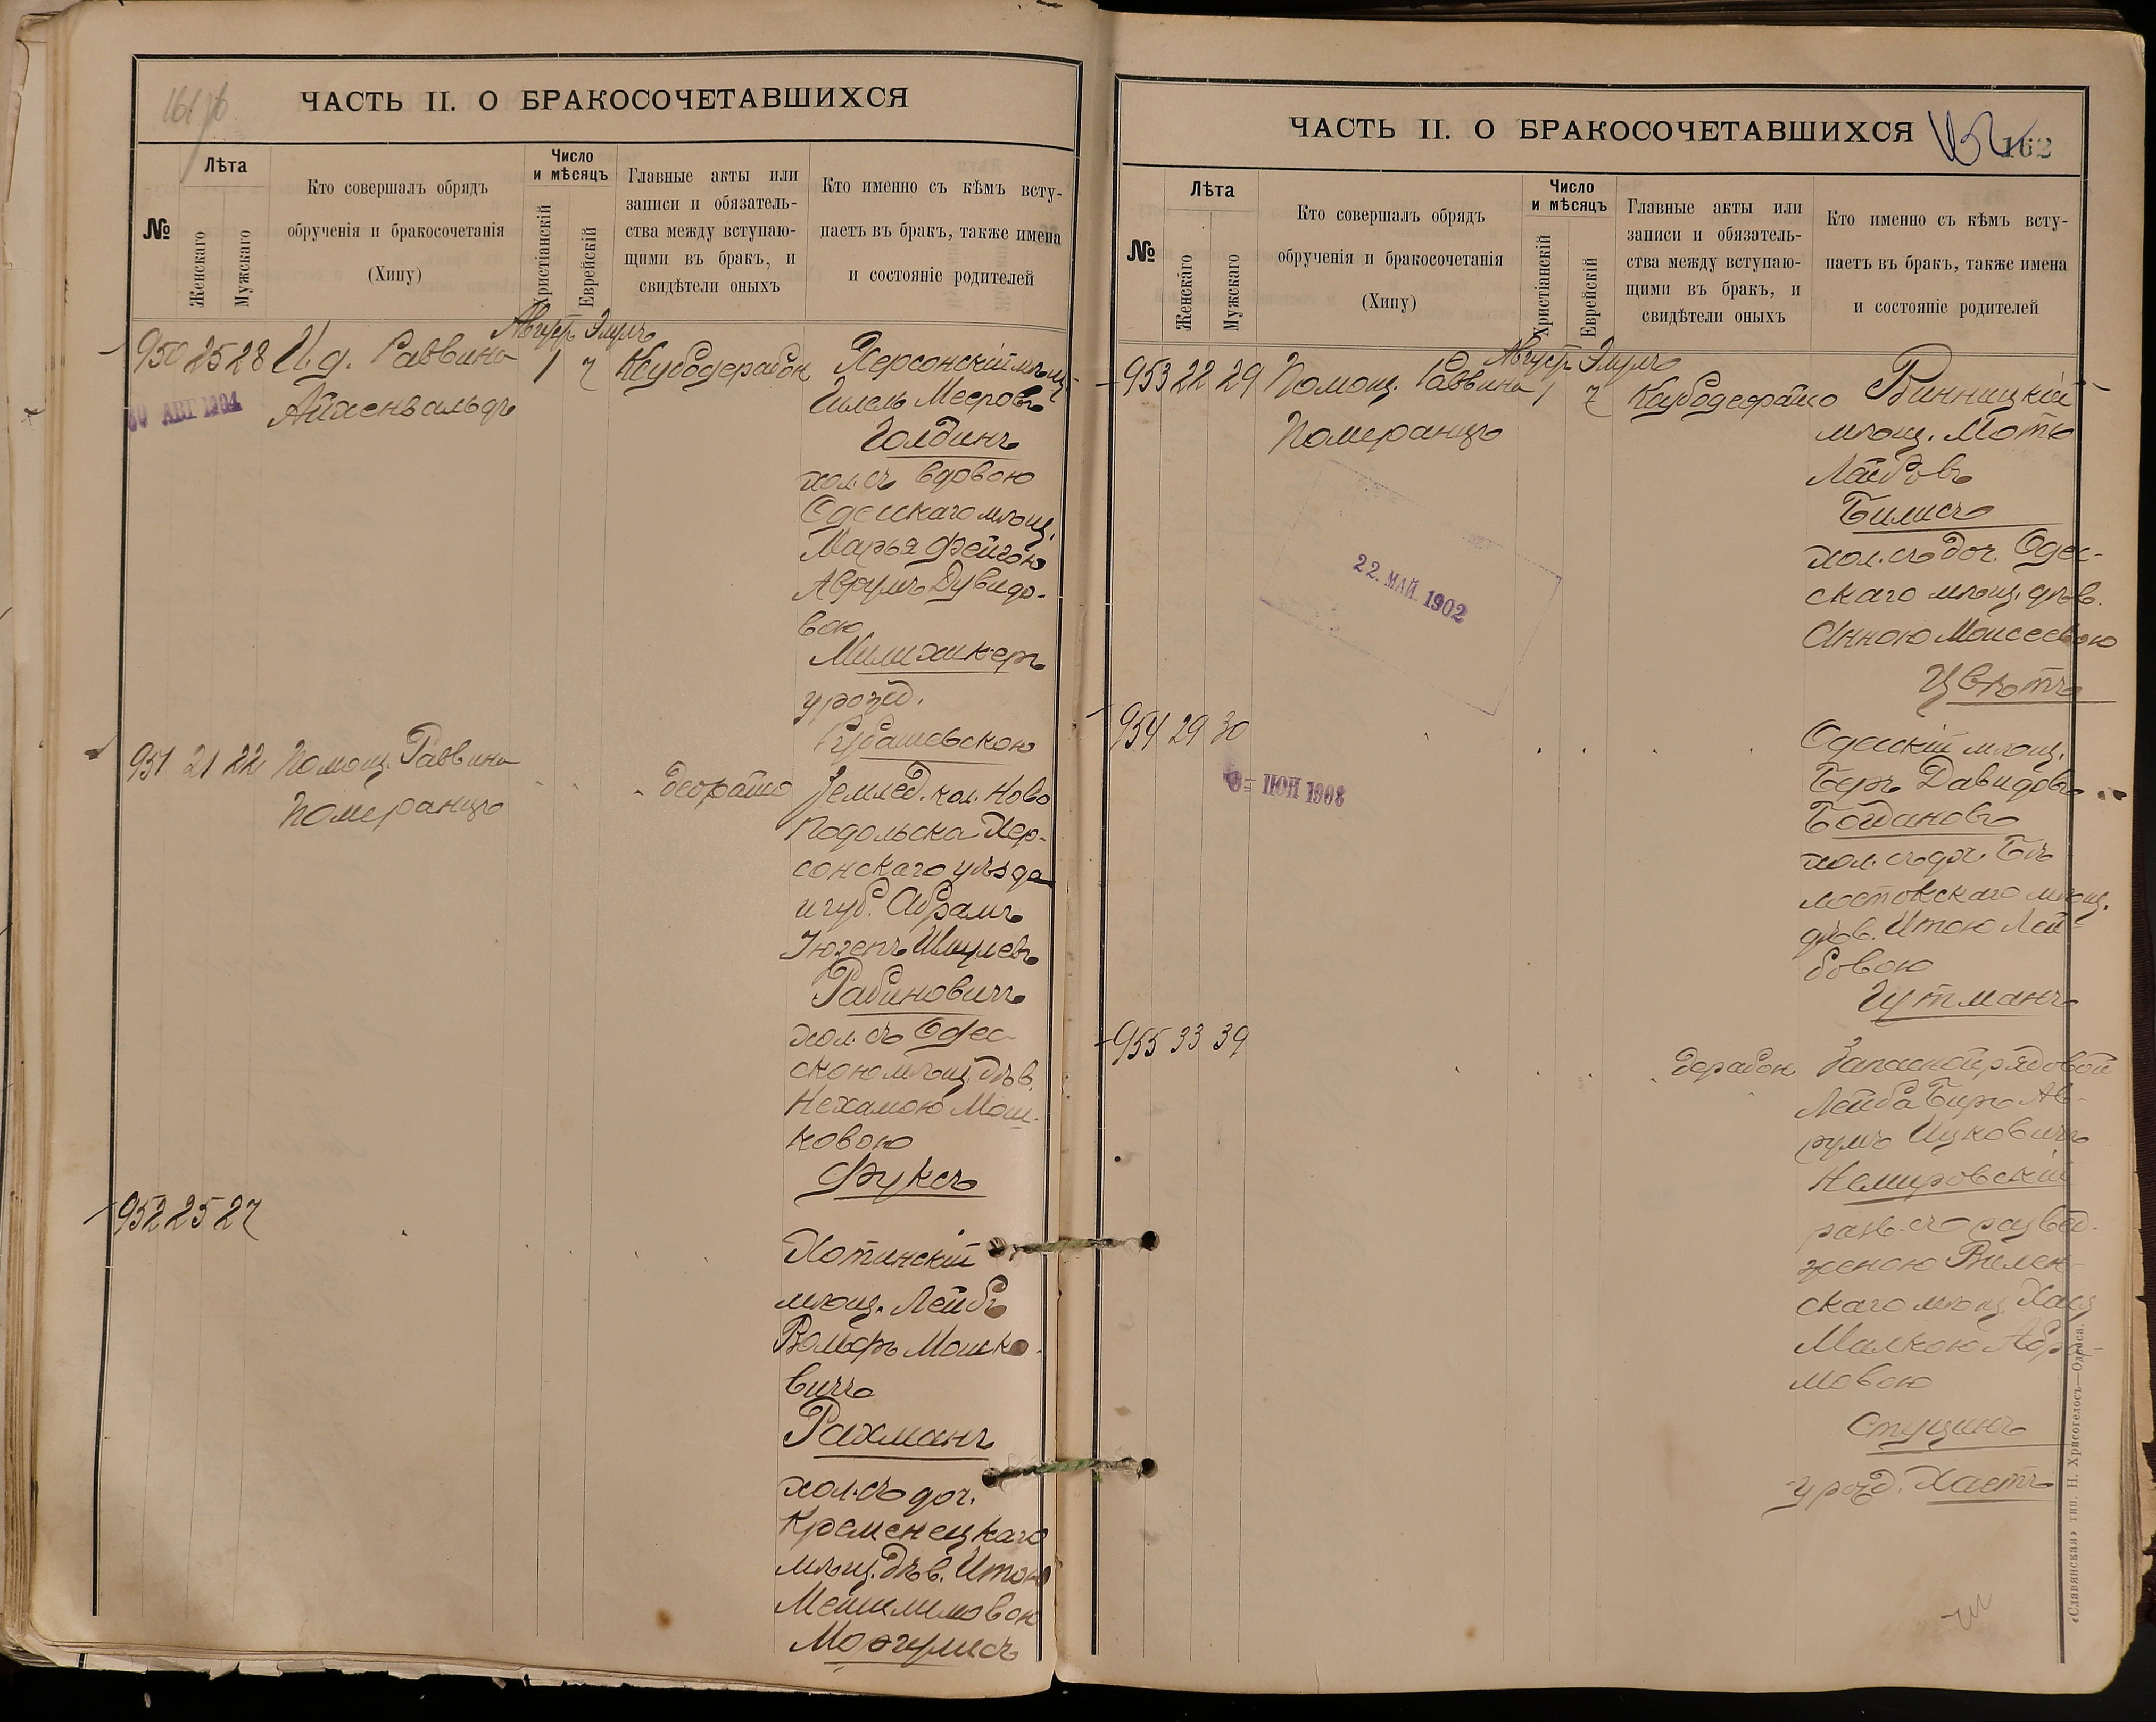 ЧАСТЬ II. О БРАКОСОЧЕТАВШИХСЯ
№
Лѣта
Женскаго
Мужскаго
Кто совершалъ обрядъ
обрученія и бракосочетанія
(Хипу)
Число
и мѣсяцъ
Христіанскій
Еврейскій
Главные акты или
записи и обязатель-
ства между вступаю-
щими въ бракъ, и
свидѣтели оныхъ
Кто именно съ кѣмъ всту-
паетъ въ бракъ, также имена
и состояніе родителей
950 25 28 И. д. Раввина
Айхенвальдъ
Август. Элулъ
1 7
30 АВГ 1904
Херсонскій мѣщ.
Гилель Мееровъ
Голдинъ
хол. съ вдовою
Одесскаго мѣщ.
Марья Фейгою
Аврумъ Дувидо-
вою
Милихикеръ
урожд.
951 21 22 Помощ. Раввина
Померанцъ
Землед. кол. Ново
Подольска Хер-
сонскаго уѣзда
и губ. Абрамъ
Шмулевъ
Рабиновичъ
хол. съ Одес-
скою мѣщ. дѣв.
Нехамою Мош-
ковою
Фуксъ
952 25 27
Хотинскій
мѣщ. Лейбъ
Вольфъ Мошко-
вичъ
Рахманъ
хол. съ доч.
Кременецкаго
мѣщ. дѣв. Итою
Моргулисъ
ЧАСТЬ II. О БРАКОСОЧЕТАВШИХСЯ
162
№
Лѣта
Женскаго
Мужскаго
Кто совершалъ обрядъ
обрученія и бракосочетанія
(Хипу)
Число
и мѣсяцъ
Христіанскій
Еврейскій
Главные акты или
записи и обязатель-
ства между вступаю-
щими въ бракъ, и
свидѣтели оныхъ
Кто именно съ кѣмъ всту-
паетъ въ бракъ, также имена
и состояніе родителей
953 22 29 Помощ. Раввина
Померанцъ
Август. Элулъ
1 7
Винницкій
мѣщ. Мотъ
Лейбовъ
Билисъ
хол. съ доч. Одес-
скаго мѣщ. дѣв.
Анною Моисеевою
Цвѣтъ
22. МАЙ. 1902
954 29 30
ІЮН 1908
Одесскій мѣщ.
Беръ Давидовъ
Богдановъ
хол. съ доч. Бѣ-
лостокскаго мѣщ.
дѣв. Итою Лей-
бовою
Гутманъ
955 33 39
Запасной рядовой
Лейба Беръ Ав-
румъ Ицковичъ
Немировскій
разв. съ развед.
женою Вилен-
скаго мѣщ. Хаею
Малкою Абра-
мовою
Стуцинъ
урожд. Хаетъ
«Славянская» тип. Н. Хрисогелосъ—Одесса.